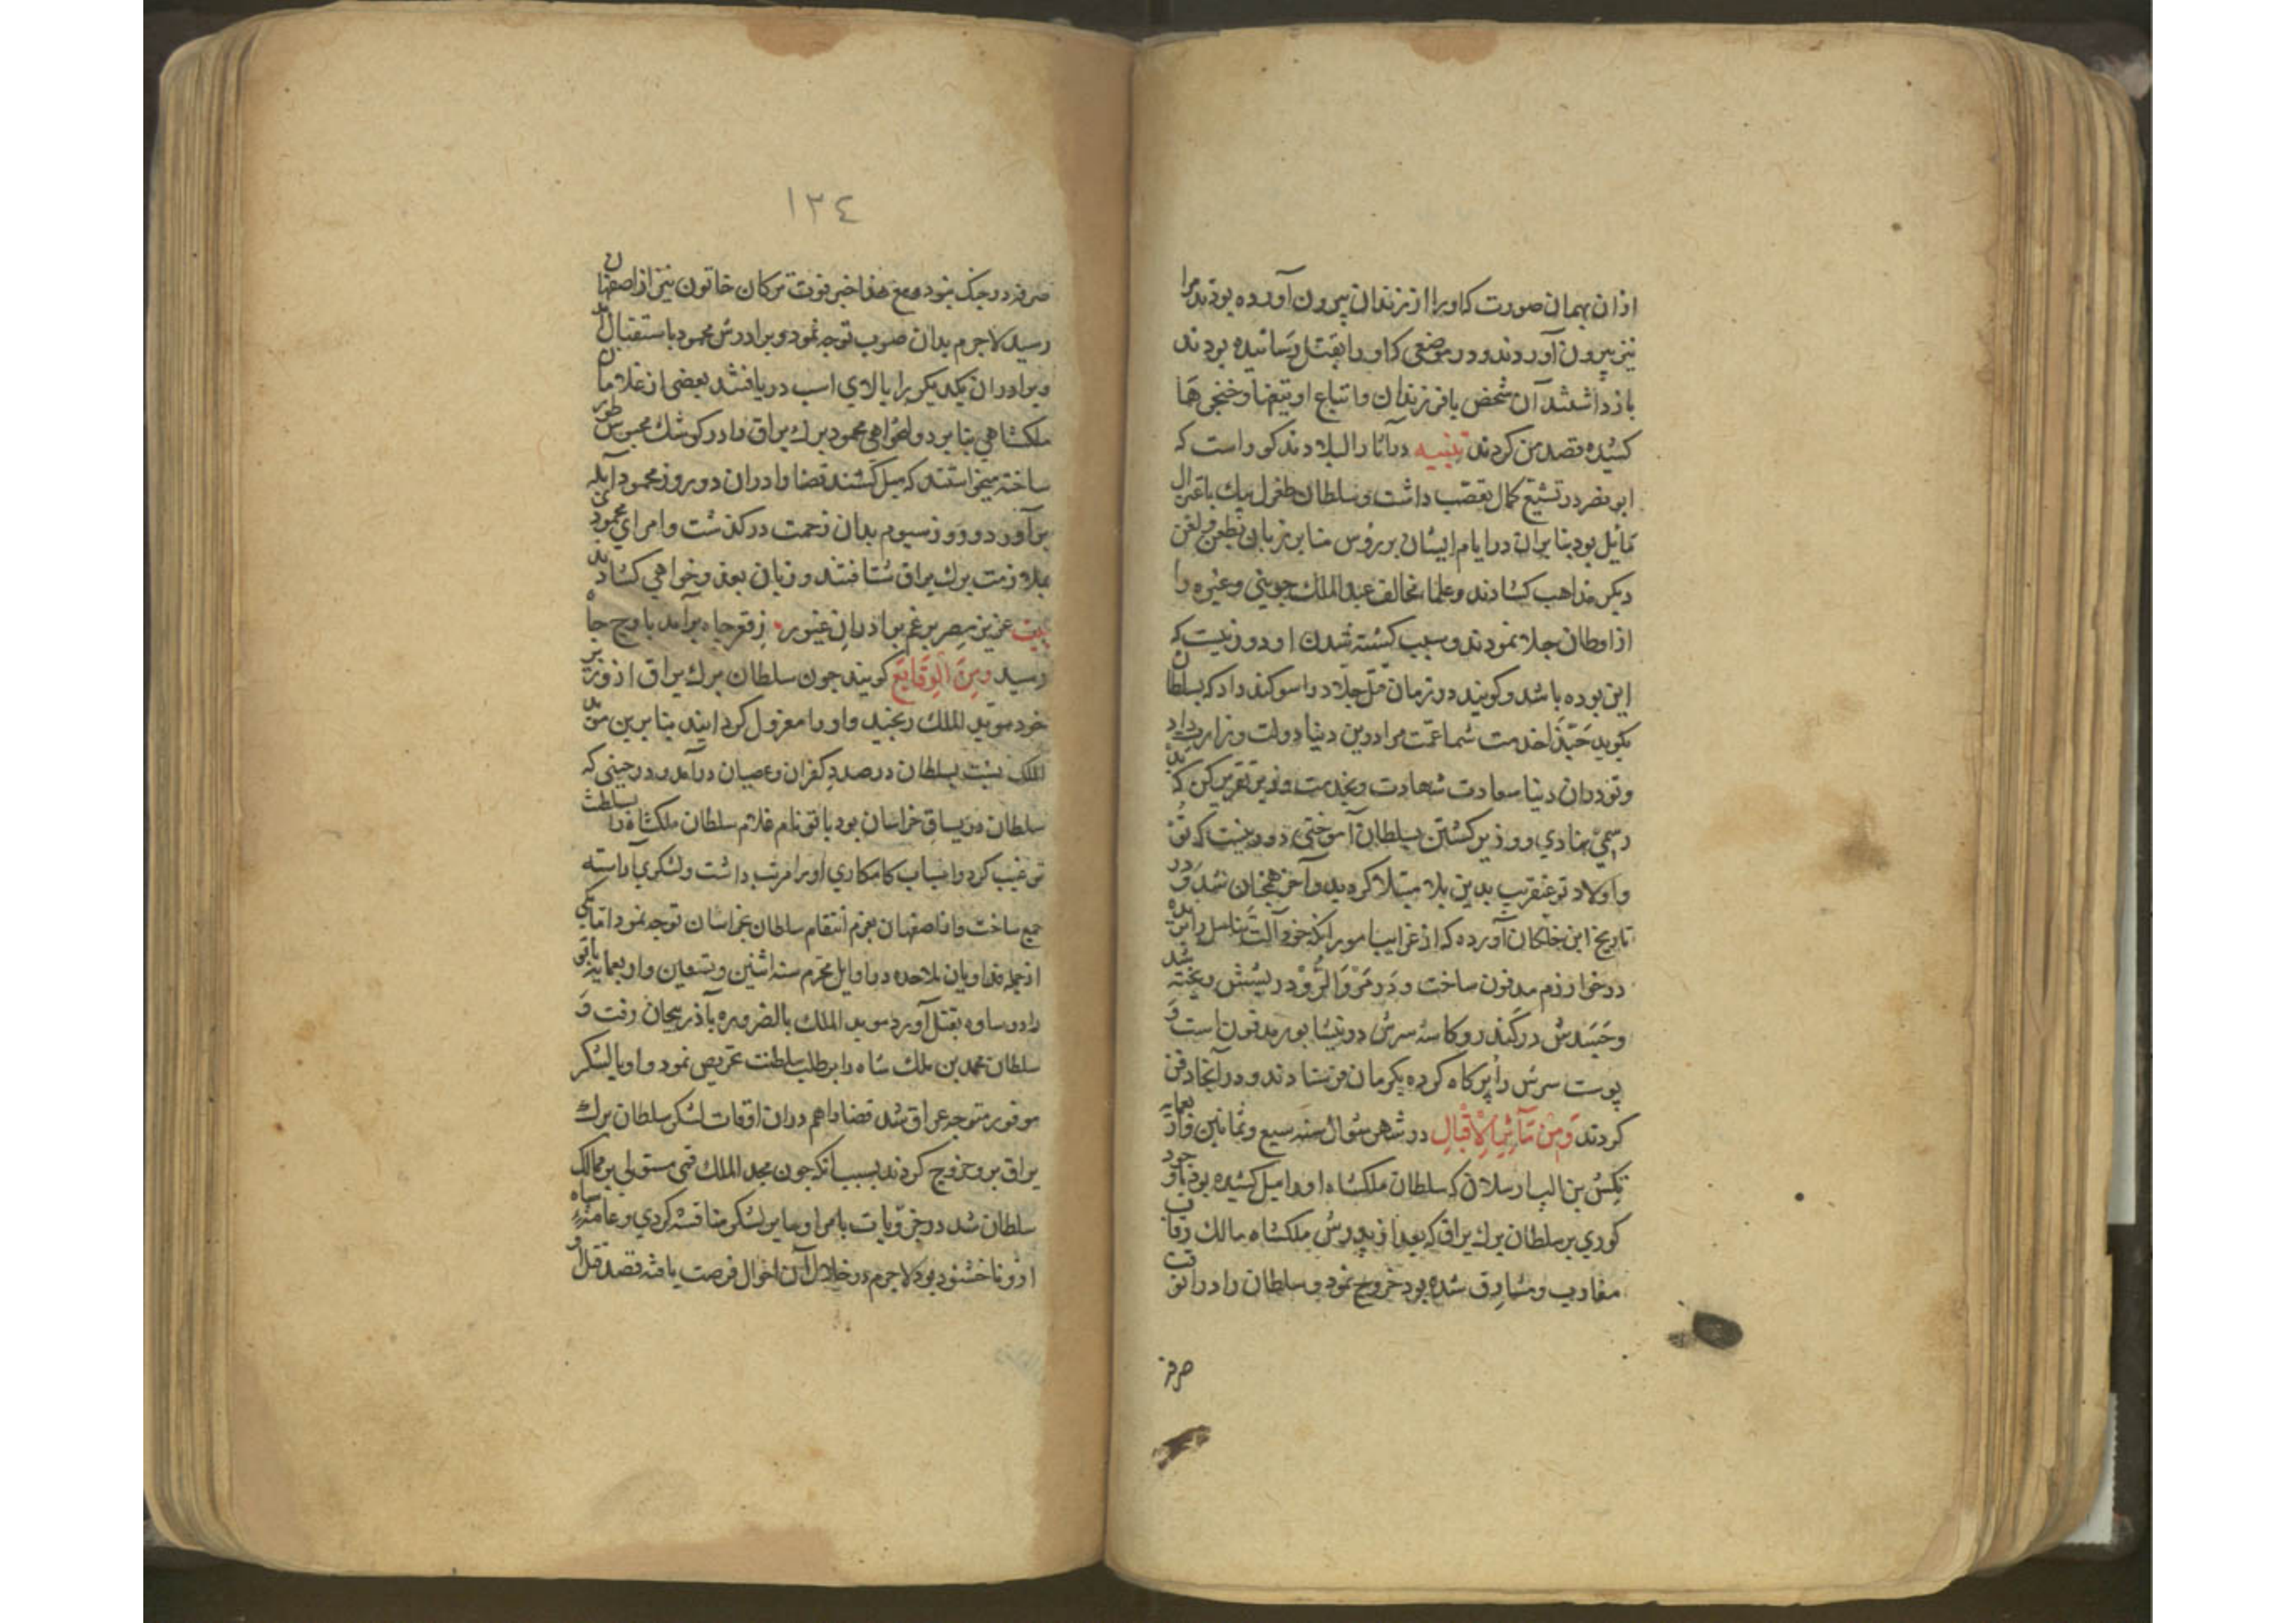 ازان بهمان صورت که اورا از زندان بیرون آورده بودند مرا
نیز بیرون آوردند و در موضعی که او را بقتل رسانیده بودند
بازداشتند آن شخص با فرزندان و اتباع او تیغها و خنجرها
کشیده قصد من کردند تنبیه در آثار البلاد مذکور است که
ابو نصر در تشیع کمال تعصب داشت و سلطان طغرل بیک باعتزال
مایل بود بنا بران در ایام ایشان بر رؤس منابر زبان بطعن و لعن
دیگر مذاهب کشادند و علماء مخالف عبد الملک جوینی و غیره را
از اوطان جلا نمودند و سبب کشته شدن او دور نیست که
این بوده باشد و گویند در زمان قتل جلاد را سوگند داد که بسلطان
بگوید حبّذا خدمت شما عمت مرا در دین دنیا دولت وزارت داد
و تو دران دنیا سعادت شهادت و بخدمت وزیر تقریر کن که بد
رسمی نهادی و وزیر کشتن بسلطان آموختی دور نیست که تو
و اولاد تو عنقریب بدین بلا مبتلا گردید و آخر همچنان شد و در
تاریخ ابن خلکان آورده که از غرایب امور آنکه خود آلت تناسل را بریده
در خوارزم مدفون ساخت و در مرو الرود ریشش ریخته شد
و جسدش در کندر و کاسهٔ سرش در نیشابور مدفون است و
پوست سرش را پر کاه کرده بکرمان فرستادند و در آنجا دفن
کردند و من مآثر الاقبال در شهر شوال سنه سبع و ثمانین و اربعمایه
تکش بن الب ارسلان که سلطان ملکشاه او را میل کشیده بود با وجود
کوری بر سلطان برک یراق که بعد از پدرش ملکشاه مالک رقاب
مغارب و مشارق شده بود خروج نمود و سلطان را در انوقت
صرفه
١٣٤
صرفه در جنک نبود و مع هذا خبر فوت ترکان خاتون نیز از اصفهان
رسید لاجرم بدان صوب توجه نمود و برادرش محمود باستقبال آمد
و برادران یکدیکر را بالای اسب دریافتند بعضی از غلامان
ملکشاهی بنا بر دولتخواهی محمود برک یراق را در کوشک محبوس
ساخته میخواستند که میل کشند قضا را دران دو روز محمود آبله
برآورد و روز سیوم بدان زحمت درگذشت و امرای محمود
بملازمت برک یراق شتافتند و زبان بعذر خواهی کشادند
بیت عزیز مصر برغم برادران غیور ز قعر چاه برآمد باوج جاه
رسید و من الوقایع گویند چون سلطان برک یراق از وزیر
خود موید الملک رنجید و او را معزول گردانید بنا برین موید
الملک نسبت بسلطان در صدد کفران و عصیان درآمد و در حینی که
سلطان در یساق خراسان بود نام غلام سلطان ملکشاه را بسلطنت
ترغیب کرد و اسباب کامکاری او را مرتب داشت و لشکری آراسته
جمع ساخت و از اصفهان بعزم انتقام سلطان بخراسان توجه نمود اما یکی
از جمله فداویان ملاحده در اوایل محرم سنه اثنین و تسعین و اربعمایه
را در ساوه بقتل آورد موید الملک بالضروره بآذربیجان رفت و
سلطان محمد بن ملک شاه را بر طلب سلطنت تحریص نمود و او با لشکر
موفور متوجه عراق شد قضا را هم دران اوقات لشکر سلطان برک
یراق بر و خروج کردند بسبب آنکه چون مجد الملک قمی مستولی بر ممالک
سلطان شد در جزویات با امرا و سایر لشکر مناقشه کردی و عامهٔ سپاه
ازو ناخشنود بود لاجرم در خلال آن احوال فرصت یافته قصد قتل او